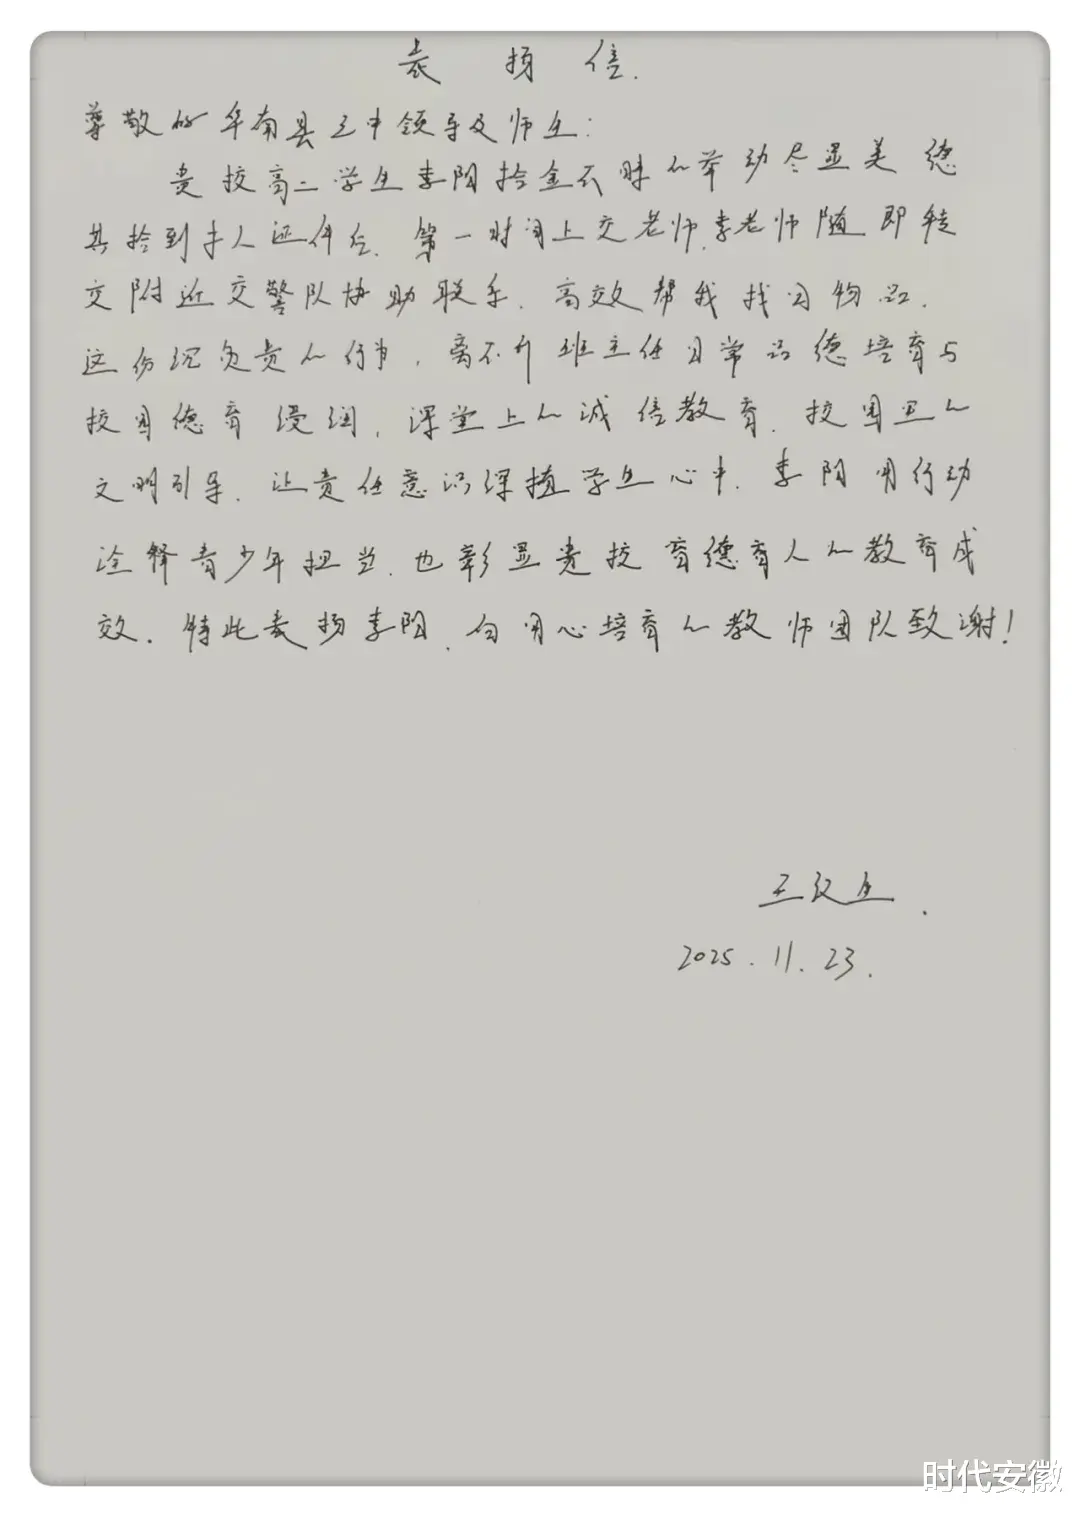 表扬信.
尊敬的阜南县三中领导及师生：
贵校高二学生李阳拾金不昧的举动尽显美德
其拾到本人证件后.第一时间上交老师.李老师随即转
交附近交警队协助联系.高效帮我找回物品.
这份沉负责的行为,离不开班主任日常品德培育与
校园德育浸润,课堂上的诚信教育.校园里的
文明引导.让责任意识深植学生心中.李阳用行动
诠释青少年担当.也彰显贵校育德育人的教育成
效.特此表扬李阳.向用心培育的教师团队致谢!
2025.11.23.
时代安徽